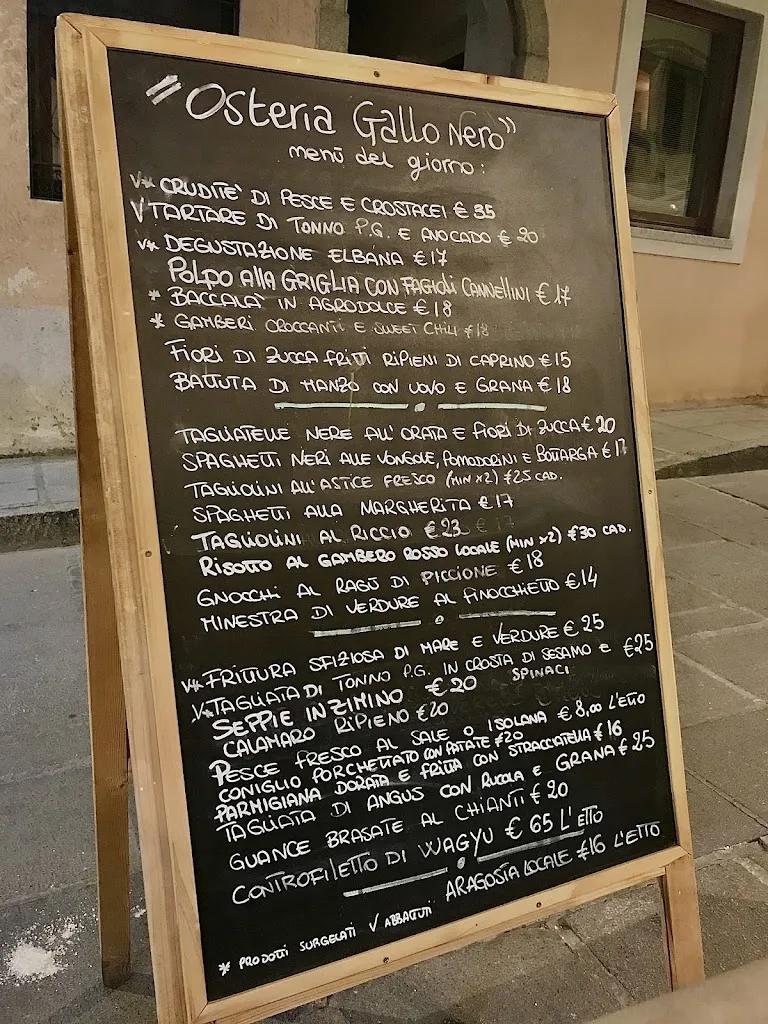 "Osteria Gallo Nero"
menù del giorno:
V* CRUDITE' DI PESCE E CROSTACEI € 35
V TARTARE DI TONNO P.G. E AVOCADO € 20
V* DEGUSTAZIONE ELBANA €17
POLPO ALLA GRIGLIA CON FAGIOLI CANNELLINI € 17
* BACCALA' IN AGRODOLCE € 18
* GAMBERI CROCCANTI E SWEET CHILI €18
FIORI DI ZUCCA FRITTI RIPIENI DI CAPRINO € 15
BATTUTA DI MANZO CON UOVO E GRANA € 18
TAGLIATELLE NERE ALL' ORATA E FIORI DI ZUCCA € 20
SPAGHETTI NERI ALLE VONGOLE, POMODORINI E BOTTARGA € 17
TAGLIOLINI ALL'ASTICE FRESCO (MIN X2) €25 CAD.
SPAGHETTI ALLA MARGHERITA € 17
TAGLIOLINI AL RICCIO € 23
RISOTTO AL GAMBERO ROSSO LOCALE (MIN X2) €30 CAD.
GNOCCHI AL RAGÙ DI PICCIONE € 18
MINESTRA DI VERDURE AL FINOCCHIETTO € 14
V* FRITTURA SFIZIOSA DI MARE E VERDURE € 25
V* TAGLIATA DI TONNO P.G. IN CROSTA DI SESAMO E SPINACI €25
SEPPIE IN ZIMINO € 20
CALAMARO RIPIENO € 20
PESCE FRESCO AL SALE O ISOLANA € 8,00 L'ETTO
CONIGLIO PORCHETTATO CON PATATE €20
PARMIGIANA DORATA E FRITTA CON STRACCIATELLA € 16
TAGLIATA DI ANGUS CON RUCOLA E GRANA € 25
GUANCE BRASATE AL CHIANTI € 20
CONTROFILETTO DI WAGYU € 65 L'ETTO
ARAGOSTA LOCALE €16 L'ETTO
* PRODOTTI SURGELATI V ABBATTUTI